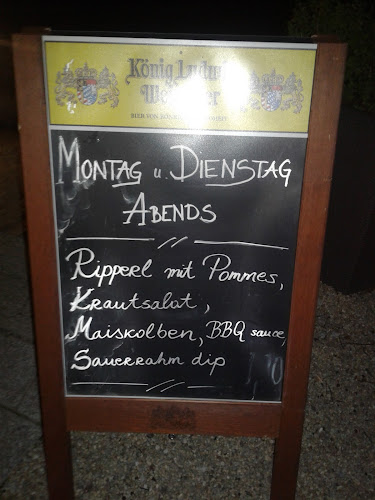 König Ludwig
MONTAG u. DIENSTAG
ABENDS
Ripperl mit Pommes,
Krautsalat,
Maiskolben, BBQ sauce,
Sauerrahm dip